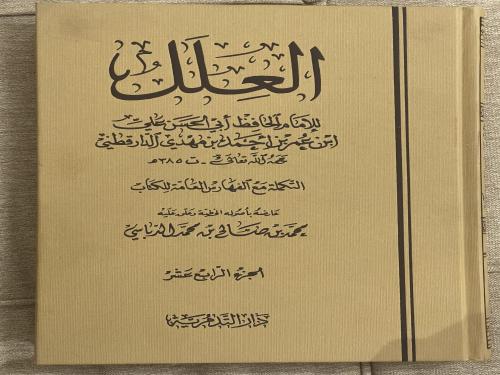 العلل
للإمام الحافظ أبي الحسن علي
ابن عمر بن أحمد بن مهدي الدارقطني
رحمه الله تعالى - ت ٣٨٥ هـ
التكملة مع الفهارس العامة للكتاب
عارضه بأصوله الخطية وعلق عليه
محمد بن صالح بن محمد الدباسي
الجزء الرابع عشر
دار التدمرية